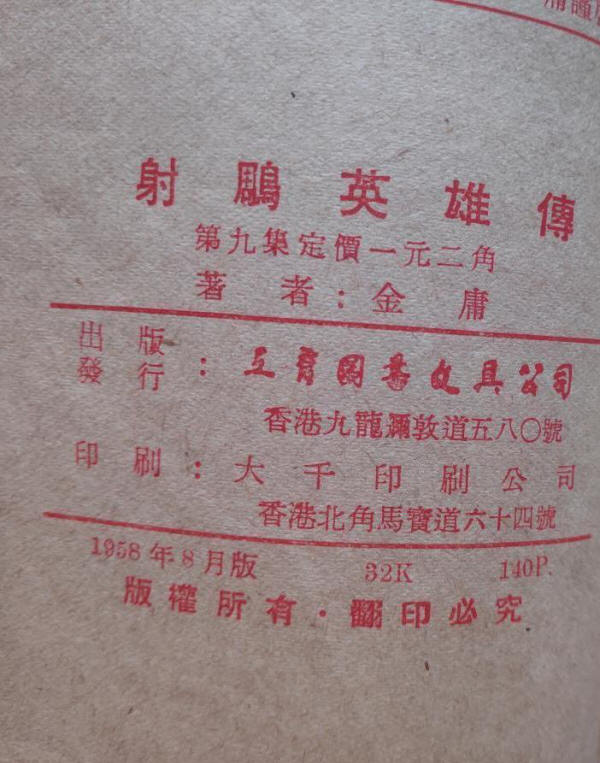 射鵰英雄傳
第九集定價一元二角
著者：金庸
出版
發行：三育圖書文具公司
香港九龍彌敦道五八〇號
印刷：大千印刷公司
香港北角馬寶道六十四號
1958年8月版 32K 140P.
版權所有·翻印必究